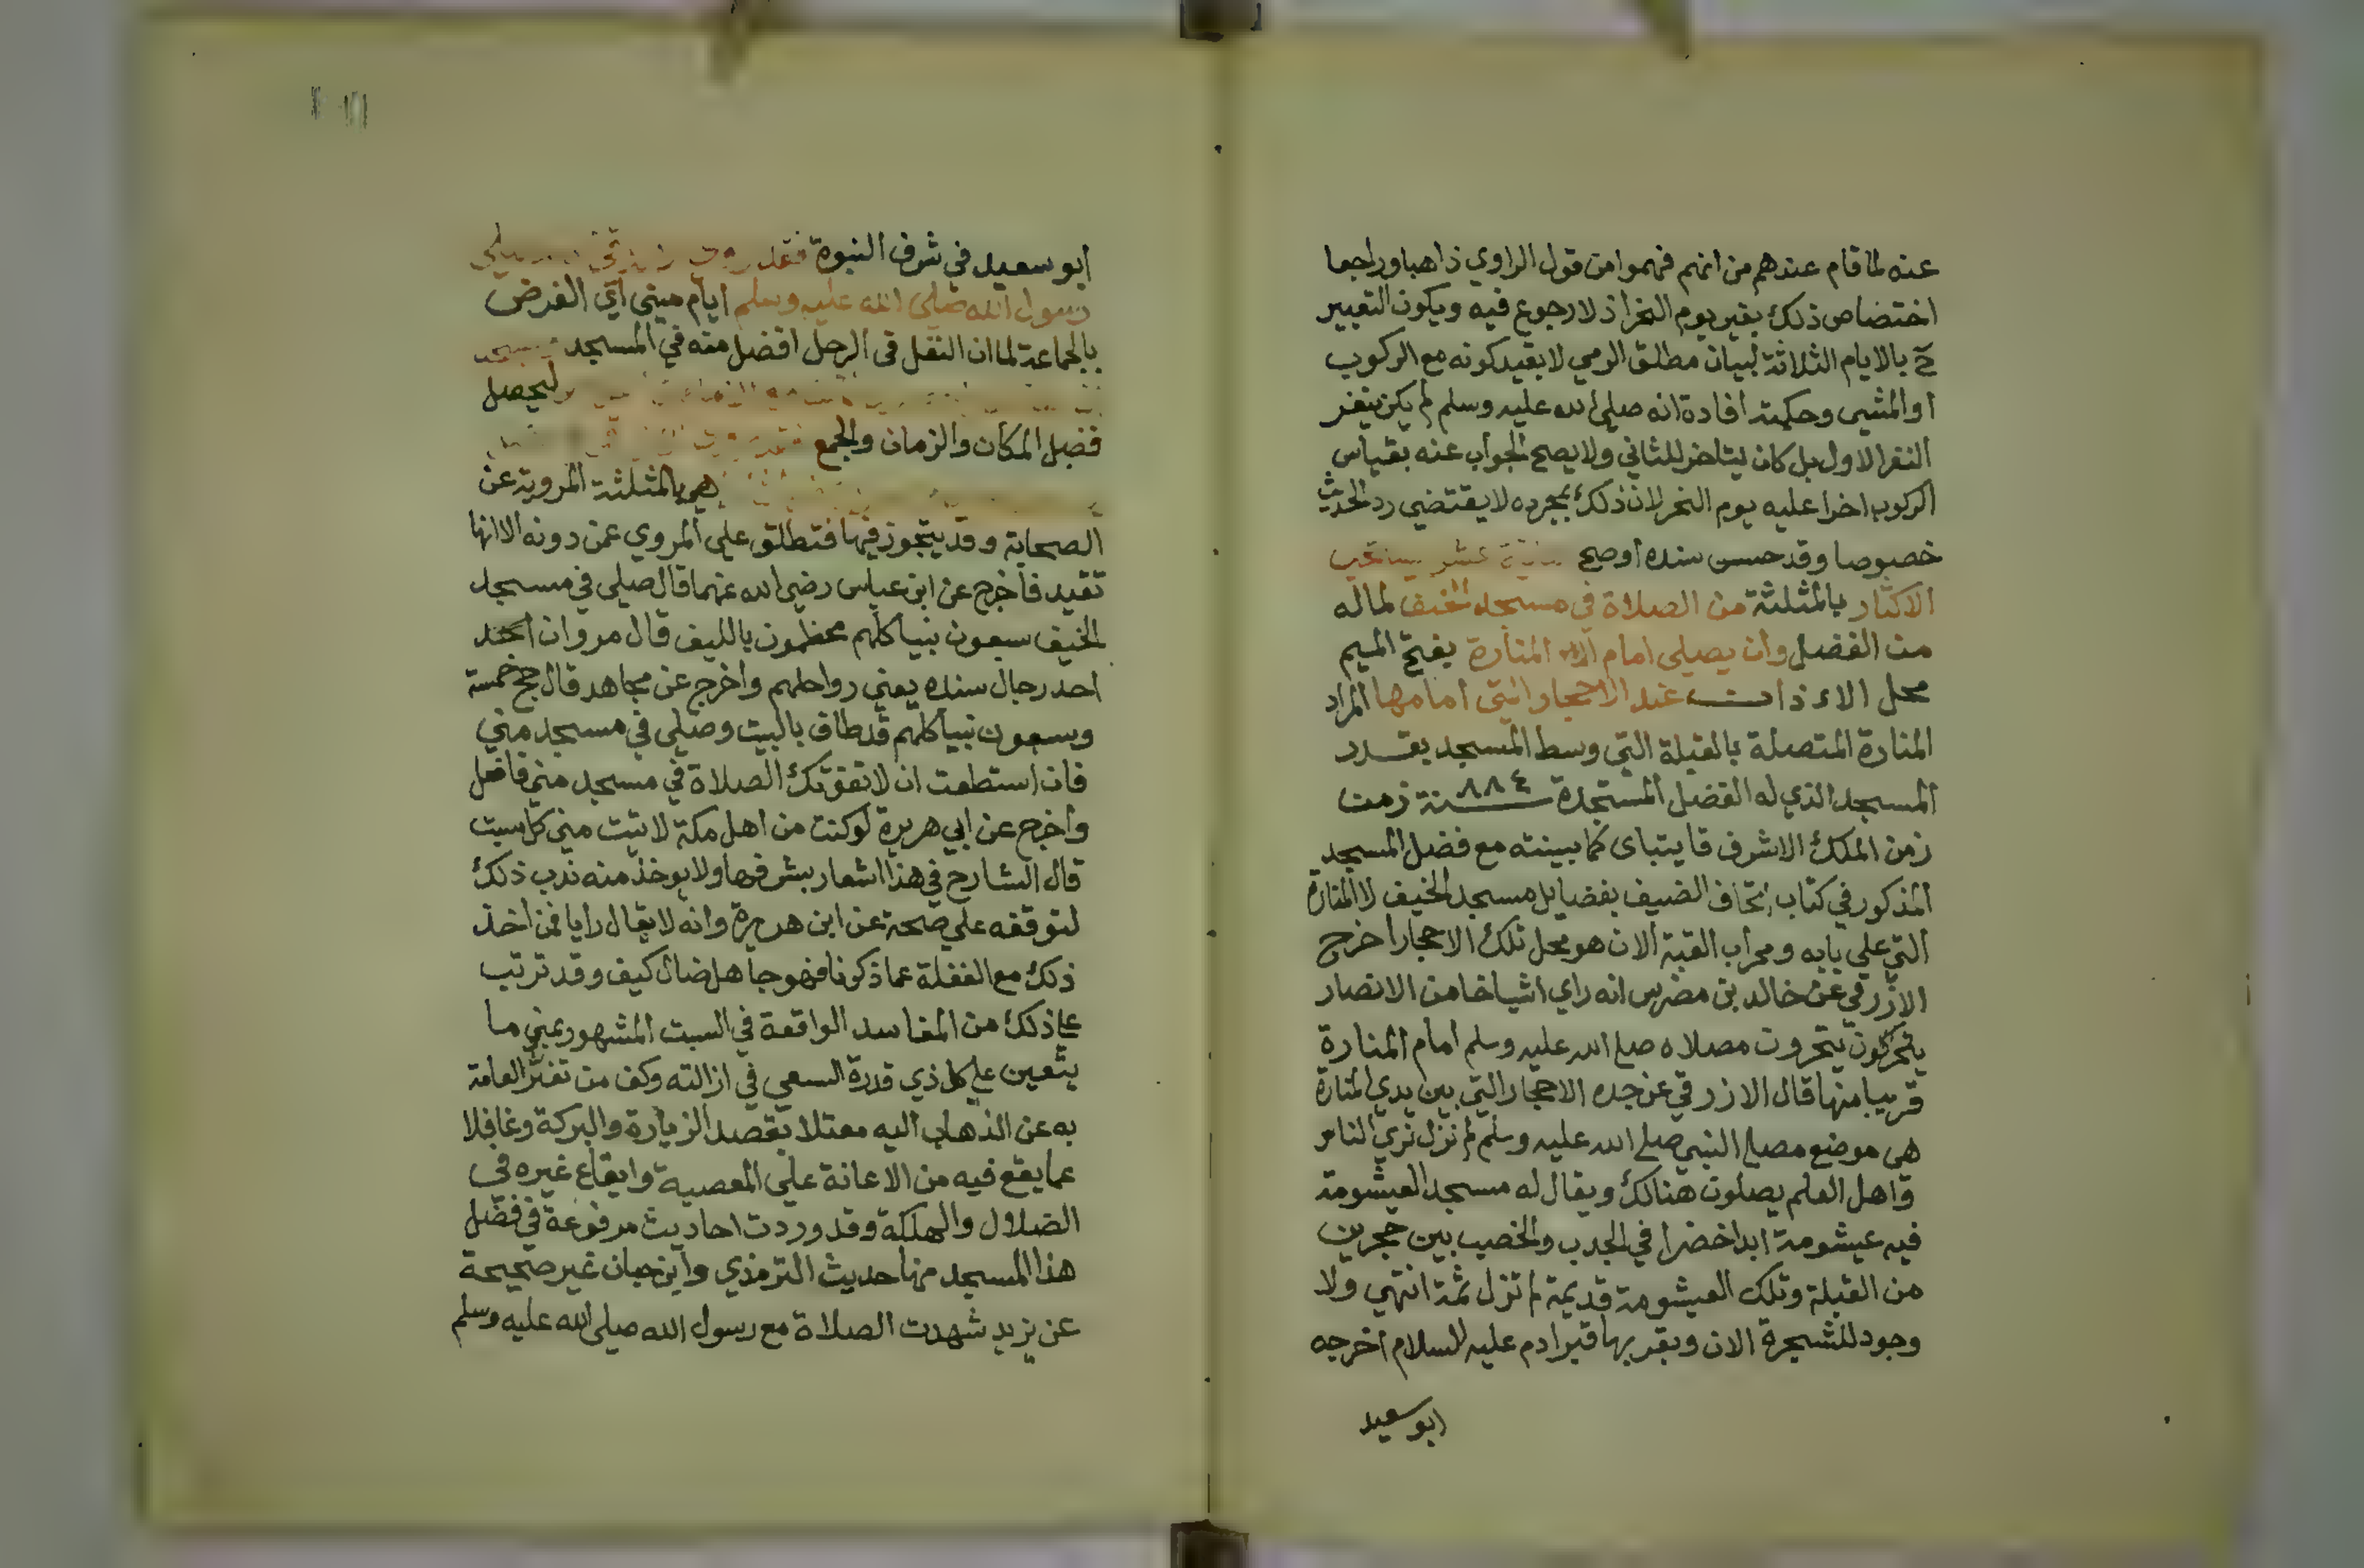 عنه لما قام عندهم من انهم فهموا من قول الراوي ذاهبا وراجعا
اختصاص ذلك بغير يوم النحر اذ لا رجوع فيه ويكون التعبير
ح بالايام الثلاثة لبيان مطلق الرمي لا بقيد كونه مع الركوب
او المشي وحكمته افادة انه صلى الله عليه وسلم لم يكن ينفر
النفر الاول بل كان يتاخر للثاني ولا يصح الجواب عنه بقياس
الركوب اخرا عليه يوم النحر لان ذلك بمجرده لا يقتضي رد الحديث
خصوصا وقد حسن سنده او صح عشر يستحب
الاكثار بالمثلثة من الصلاة في مسجد الخيف لما له
من الفضل وان يصلي امام المنارة بفتح الميم
محل الاذان عند الاحجار التي امامها المراد
المنارة المتصلة بالقبلة التي وسط المسجد بقدر
المسجد الذي له الفضل المستجدة سنة ٨٨٤ زمن
زمن الملك الاشرف قايتباى كما بينته مع فضل المسجد
المذكور في كتاب اتحاف الضيف بفضايل مسجد الخيف لا المنارة
التي على بابه ومحراب القبة الان هو محل تلك الاحجار اخرج
الازرقي عن خالد بن مضرس انه راي اشياخا من الانصار
يتحرون مصلاه صلى الله عليه وسلم امام المنارة
قريبا منها قال الازرقي عن جده الاحجار التي بين يدي المنارة
هي موضع مصلى النبي صلى الله عليه وسلم لم نزل نري الناس
واهل العلم يصلون هنالك ويقال له مسجد العيشومة
فيه عيشومة ابدا خضرا في الجدب والخصب بين حجرين
من القبلة وتلك العيشومة قديمة لم تزل ثمة انتهي ولا
وجود للشجرة الان وبقربها قبر ادم عليه السلام اخرجه
ابو سعيد
ابو سعيد في شرف النبوة فقد
رسول الله صلى الله عليه وسلم ايام منى اي الفرض
بالجماعة لما ان النفل في الرحل افضل منه في المسجد
ليحصل
فضل المكان والزمان والجمع
هي بالمثلثة المروية عن
الصحابة وقد يتجوز فيها فتطلق على المروي عمن دونه الا انها
تقيد فاخرج عن ابن عباس رضي الله عنهما قال صلى في مسجد
الخيف سبعون نبيا كلهم مخطمون بالليف قال مروان
احد رجال سنده يعني رواحلهم واخرج عن مجاهد قال حج خمسة
وسبعون نبيا كلهم قد طاف بالبيت وصلى في مسجد منى
فان استطعت ان لا تفوتك الصلاة في مسجد منى فافعل
واخرج عن ابي هريرة لو كنت من اهل مكة لاتيت منى كل سبت
قال الشارح في هذا اشعار بشرفها ولا يوخذ منه ندب ذلك
لتوقفه على صحة عن ابن هريرة وانه لا يقال رايا فمن اخذ
ذلك مع الغفلة عما ذكرنا فهو جاهل ضال كيف وقد ترتب
على ذلك من المفاسد الواقعة في السبت المشهور بمنى ما
يتعين على كل ذي قدرة السعي في ازالته وكف من تغتر العامة
به عن الذهاب اليه معتلا بقصد الزيارة والبركة وغافلا
عما يقع فيه من الاعانة على المعصية وايقاع غيره في
الضلال والهلكة وقد وردت احاديث مرفوعة في فضل
هذا المسجد منها حديث الترمذي وابن حبان غير صحيحة
عن يزيد شهدت الصلاة مع رسول الله صلى الله عليه وسلم